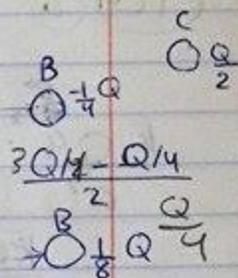 C
Q/2
B
-1/4 Q
3Q/4 - Q/4
2
B
1/8 Q
Q/4